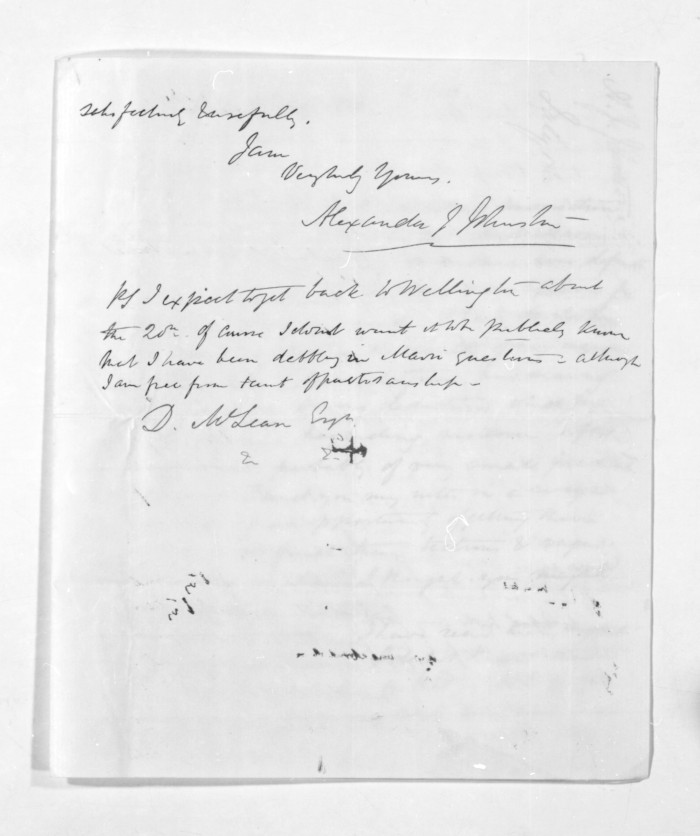 satisfactorily & usefully.
I am
Very truly Yours.
Alexander J Johnston
PS I expect to get back to Wellington about
the 20th. Of course I don't want it to be publicly known
that I have been dabbling in Maori questions - although
I am free from taint of partisanship -
D. McLean Esqr
&